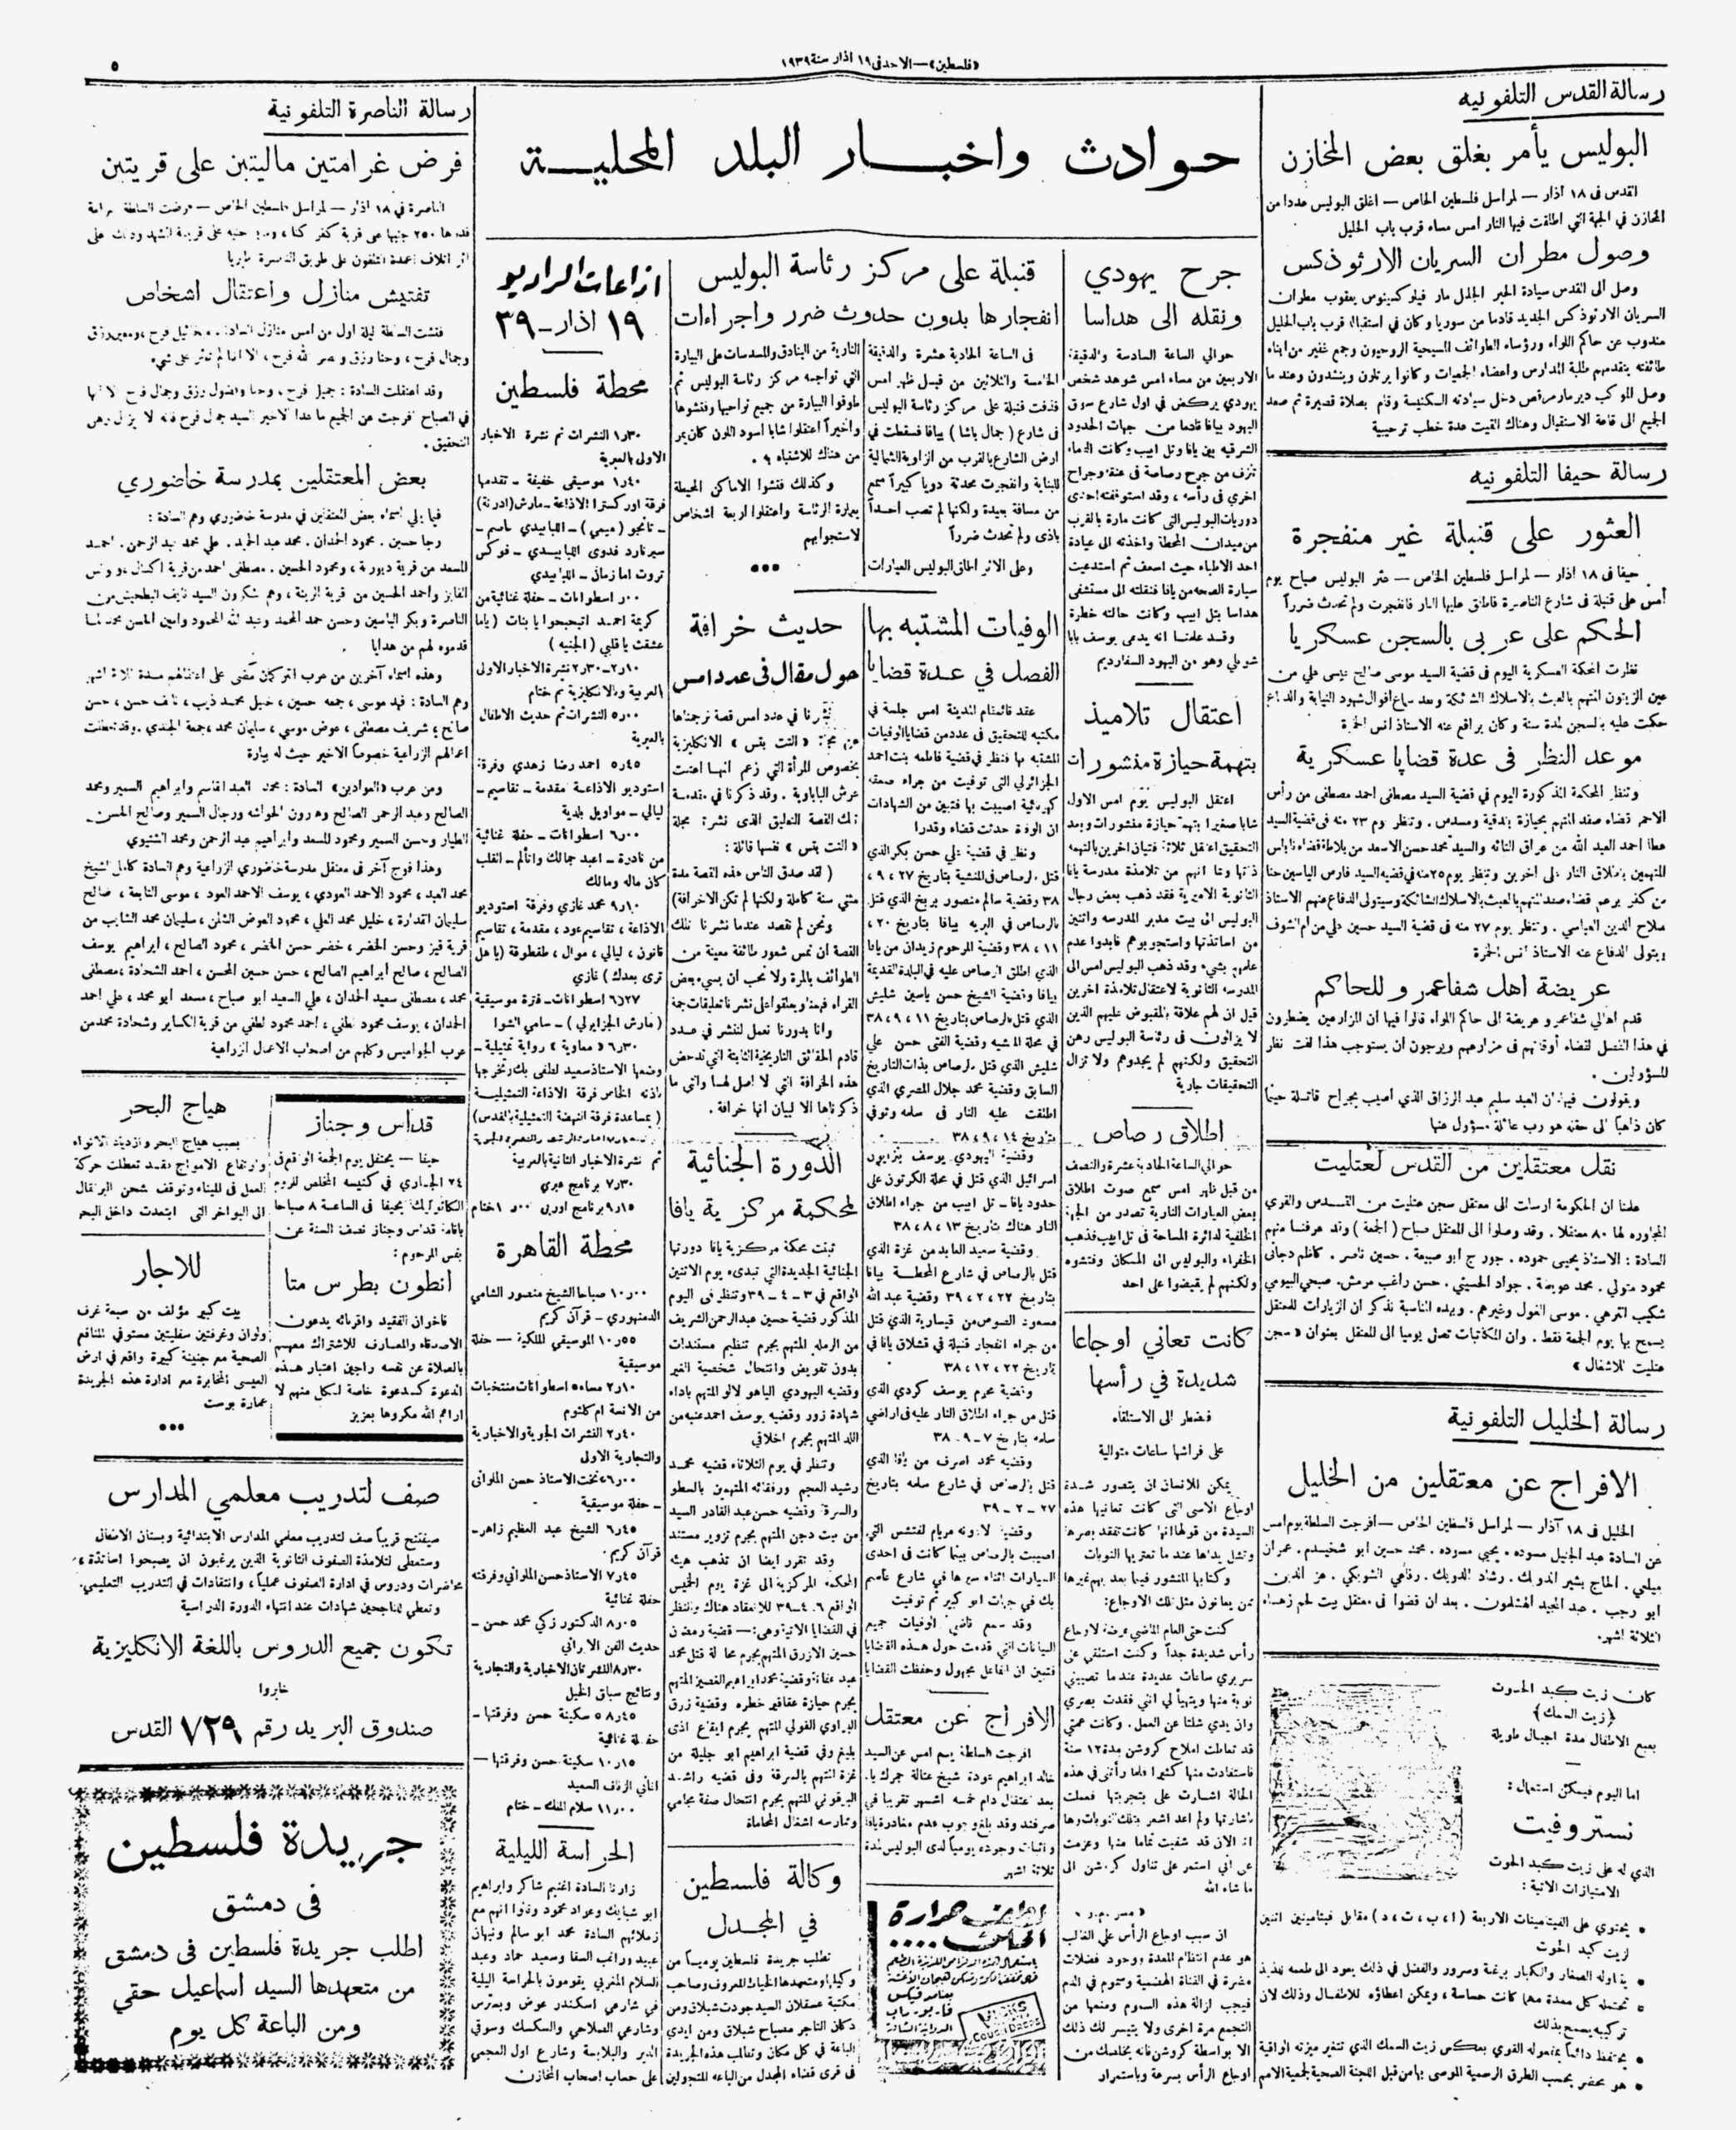 «فلسطين» — الاحد في ١٩ اذار سنة ١٩٣٩
٥
رسالة القدس التلفونيه
البوليس يأمر بغلق بعض المخازن
القدس في ١٨ اذار — لمراسل فلسطين الخاص — اغلق البوليس عددا من
المخازن في الجهة التي اطلقت فيها النار امس مساء قرب باب الخليل
وصول مطران السريان الارثوذكس
وصل الى القدس سيادة الحبر الجليل مار فيلوكسينوس يعقوب مطران
السريان الارثوذكس الجديد قادما من سوريا وكان في استقباله قرب باب الخليل
مندوب عن حاكم اللواء ورؤساء الطوائف المسيحية الروحيون وجمع غفير من ابناء
طائفته يتقدمهم طلبة المدارس واعضاء الجمعيات وكانوا يرتلون وينشدون وعند ما
وصل الموكب دير مار مرقص دخل سيادته الكنيسة وقام بصلاة قصيرة ثم صعد
الجميع الى قاعة الاستقبال وهناك القيت عدة خطب ترحيبية
رسالة حيفا التلفونيه
العثور على قنبلة غير منفجرة
حيفا في ١٨ اذار — لمراسل فلسطين الخاص — عثر البوليس صباح يوم
أمس على قنبلة في شارع الناصرة فاطلق عليها النار فانفجرت ولم تحدث ضرراً
الحكم على عربي بالسجن عسكريا
نظرت المحكمة العسكرية اليوم في قضية السيد موسى صالح عيسى علي من
عين الزيتون المتهم بالعبث بالاسلاك الشائكة وبعد سماع اقوال شهود النيابة والدفاع
حكمت عليه بالسجن لمدة سنة وكان يرافع عنه الاستاذ انس الخمرة
موعد النظر في عدة قضايا عسكرية
وتنظر المحكمة المذكورة اليوم في قضية السيد مصطفى احمد مصطفى من رأس
الاحمر قضاء صفد المتهم بحيازة بندقية ومسدس . وتنظر يوم ٢٣ منه في قضية السيد
عطا احمد العبد الله من عراق التائه والسيد محمد حسن الاسعد من بلاطة قضاء نابلس
المتهمين باطلاق النار على آخرين وتنظر يوم ٢٥ منه في قضية السيد فارس الياسين حنا
من كفر برعم قضاء صفد المتهم بالعبث بالاسلاك الشائكة وسيتولى الدفاع عنهم الاستاذ
صلاح الدين العباسي . وتنظر يوم ٢٧ منه في قضية السيد حسين علي من ام الشوف
ويتولى الدفاع عنه الاستاذ انس الخمرة
عريضة اهل شفاعمرو للحاكم
قدم اهالي شفاعمرو عريضة الى حاكم اللواء قالوا فيها ان المزارعين يضطرون
في هذا الفصل لقضاء أوقاتهم في مزارعهم ويرجون ان يستوجب هذا لفت نظر
المسؤولين .
ويقولون فيها ان العبد سليم عبد الرزاق الذي أصيب بجراح قاتلة حينما
كان ذاهباً الى حقله هو رب عائلة مسؤول عنها
نقل معتقلين من القدس لعتليت
علمنا ان الحكومة ارسلت الى معتقل سجن عتليت من القدس والقرى
المجاوره لها ٨٠ معتقلا . وقد وصلوا الى المعتقل صباح ( الجمعة ) وقد عرفنا منهم
السادة : الاستاذ يحيى حموده . جورج ابو صبيعة . حسين ناصر . كاظم دجاني
محمود متولي . محمد عويضة . جواد الحسيني . حسن راغب مرمش . صبحي اليومي
شكيب القرمي . موسى الغول وغيرهم . وبهذه المناسبة نذكر ان الزيارات للمعتقل
يسمح بها يوم الجمعة فقط . وان المكاتبات تصل يوميا الى المعتقل بعنوان « سجن
عتليت للاشغال »
رسالة الخليل التلفونية
الافراج عن معتقلين من الخليل
الخليل في ١٨ آذار — لمراسل فلسطين الخاص — افرجت السلطة يوم امس
عن السادة عبد الجليل مسوده . يحيى مسوده . محمد حسين ابو شخيدم . عمران
ميلمي . الحاج بشير الدويك . رشاد الدويك . رفاعي الشوبكي . عز الدين
ابو رجب . عبد المجيد الهشلمون . بعد ان قضوا في معتقل بيت لحم زهاء
ثلاثة اشهر .
كان زيت كبد الحوت
(زيت السمك)
بعبع الاطفال مدة اجيال طويلة
اما اليوم فيمكن استعمال :
نستروفيت
الذي له على زيت كبد الحوت
الامتيازات الآتية :
• يحتوي على الفيتامينات الاربعة ( ا ، ب ، ت ، د ) مقابل فيتامينين اثنين
لزيت كبد الحوت
• يتناوله الصغار والكبار برغبة وسرور والفضل في ذلك يعود الى طعمه اللذيذ
• تحتمله كل معدة مهما كانت حساسة ، ويمكن اعطاؤه للاطفال وذلك لان
تركيبه يسمح بذلك
• يحتفظ دائماً بمفعوله القوي بعكس زيت السمك الذي تتغير ميزته الواقية
• هو محضر بحسب الطرق الرسمية الموصى بها من قبل اللجنة الصحية لجمعية الامم
حوادث واخبار البلد المحلية
جرح يهودي
ونقله الى هداسا
حوالي الساعة السادسة والدقيقة
الاربعين من مساء امس شوهد شخص
يهودي يركض في اول شارع سوق
اليهود بيافا قادما من جهات الحدود
الشرقيه بين يافا وتل ابيب وكانت الدماء
تنزف من جرح رصاصة في عنقه وجراح
اخرى في رأسه ، وقد استوقفته احدى
دوريات البوليس التي كانت مارة بالقرب
من ميدان المحطة واخذته الى عيادة
احد الاطباء حيث اسعف ثم استدعيت
سيارة الصحه من يافا فنقلته الى مستشفى
هداسا بتل ابيب وكانت حالته خطرة
وقد علمنا انه يدعى يوسف بابا
شولي وهو من اليهود السفارديم
اعتقال تلاميذ
بتهمة حيازة منشورات
اعتقل البوليس يوم امس الاول
شابا صغيرا بتهمة حيازة منشورات وبعد
التحقيق اعتقل ثلاثة فتيان اخرين بالتهمة
ذاتها وبما انهم من تلامذة مدرسة يافا
الثانوية الاميرية فقد ذهب بعض رجال
البوليس الى بيت مدير المدرسه واثنين
من اساتذتها واستجوبوهم فابدوا عدم
علمهم بشيء وقد ذهب البوليس امس الى
المدرسه الثانوية لاعتقال تلامذة اخرين
قيل ان لهم علاقة بالمقبوض عليهم الذين
لا يزالون في رئاسة البوليس رهن
التحقيق ولكنهم لم يجدوهم ولا تزال
التحقيقات جارية
اطلاق رصاص
حوالي الساعة الحادية عشرة والنصف
من قبل ظهر امس سمع صوت اطلاق
بعض العيارات النارية تصدر من الجهة
الخلفية لدائرة المساحة في تل ابيب فذهب
الخفراء والبوليس الى المكان وفتشوه
ولكنهم لم يقبضوا على احد
كانت تعاني اوجاعا
شديدة في رأسها
فتضطر الى الاستلقاء
على فراشها ساعات متوالية
يمكن للانسان ان يتصور شدة
اوجاع الاسى التي كانت تعانيها هذه
السيدة من قولها انها كانت تفقد بصرها
وتشل يدها عند ما تعتريها النوبات
وكتابها المنشور فيما بعد يهم غيرها
ممن يعانون مثل تلك الاوجاع :
كنت حتى العام الماضي عرضة لاوجاع
رأس شديدة جداً وكنت استلقي على
سريري ساعات عديدة عندما تصيبني
نوبة منها ويتهيأ لي انني فقدت بصري
وان يدي شلتا عن العمل . وكانت عمتي
قد تعاطت املاح كروشن مدة ١٢ سنة
فاستفادت منها كثيرا فلما رأتني في هذه
الحالة اشارت على بتجربتها فعملت
باشارتها ولم اعد اشعر بتلك النوبات وها
انا الان قد شفيت تماما منها وعزمت
على اني استمر على تناول كروشن الى
ما شاء الله
« مسز م . ر . »
ان سبب اوجاع الرأس على الغالب
هو عدم انتظام المعدة ووجود فضلات
مضرة في القناة الهضمية وسموم في الدم
فيجب ازالة هذه السموم ومنعها من
التجمع مرة اخرى ولا يتيسر لك ذلك
الا بواسطة كروشن فانه يخلصك من
اوجاع الرأس بسرعة وباستمرار
قنبلة على مركز رئاسة البوليس
انفجارها بدون حدوث ضرر واجراءات
في الساعة الحادية عشرة والدقيقة
الخامسة والثلاثين من قبل ظهر امس
قذفت قنبلة على مركز رئاسة البوليس
في شارع ( جمال باشا ) بيافا فسقطت في
ارض الشارع بالقرب من الزاوية الشمالية
للبناية وانفجرت محدثة دويا كبيراً سمع
من مسافة بعيدة ولكنها لم تصب احداً
باذى ولم تحدث ضرراً
وعلى الاثر اطلق البوليس العيارات
النارية من البنادق والمسدسات على البيارة
التي تواجه مركز رئاسة البوليس ثم
طوقوا البيارة من جميع نواحيها وفتشوها
واخيراً اعتقلوا شابا اسود اللون كان يمر
من هناك للاشتباه به .
وكذلك فتشوا الاماكن المحيطة
بعمارة الرئاسة واعتقلوا اربعة اشخاص
لاستجوابهم
•••
الوفيات المشتبه بها
الفصل في عدة قضايا
عقد قائمقام المدينة امس جلسة في
مكتبه للتحقيق في عدد من قضايا الوفيات
المشتبه بها فنظر في قضية فاطمه بنت احمد
الجزائرلي التي توفيت من جراء صدمة
كهربائية اصيبت بها فتبين من الشهادات
ان الوفاة حدثت قضاء وقدرا
ونظر في قضية علي حسن بكر الذي
قتل بالرصاص في المنشية بتاريخ ٢٧ ، ٩ ،
٣٨ وقضية سالم منصور بريخ الذي قتل
بالرصاص في البريه بيافا بتاريخ ٢٠ ،
١١ ، ٣٨ وقضية المرحوم زيدان من يافا
الذي اطلق الرصاص عليه في البلدة القديمة
بيافا وقضية الشيخ حسن ياسين شليش
الذي قتل بالرصاص بتاريخ ١١ ، ٩ ، ٣٨
في محلة المنشيه وقضية الفتى حسن علي
شليش الذي قتل بالرصاص بذات التاريخ
السابق وقضية محمد جلال المصري الذي
اطلقت عليه النار في سلمه وتوفي
بتاريخ ١٤ ، ٩ ، ٣٨
وقضية اليهودي يوسف بنزايون
اسرائيل الذي قتل في محلة الكرتون على
حدود يافا – تل ابيب من جراء اطلاق
النار هناك بتاريخ ١٣ ، ٨ ، ٣٨
وقضية سعيد العابد من غزة الذي
قتل بالرصاص في شارع المحطة بيافا
بتاريخ ٢٢ ، ٢ ، ٣٩ وقضية عبد الله
مسعود الصوص من قيسارية الذي قتل
من جراء انفجار قنبلة في قشلاق يافا في
تاريخ ٢٢ ، ١٢ ، ٣٨
وقضية محرم يوسف كردي الذي
قتل من جراء اطلاق النار عليه في اراضي
سلمه بتاريخ ٧ - ٩ - ٣٨
وقضيه محمد اصرف من يافا الذي
قتل بالرصاص في شارع سلمه بتاريخ
٢٧ – ٢ – ٣٩
اصيبت بالرصاص بينما كانت في احدى
السيارات اثناء سيرها في شارع عاصم
بك في جهات ابو كبير ثم توفيت
وقد سمع قاضي الوفيات جميع
البيانات التي قدمت حول هذه القضايا
فتبين ان الفاعل مجهول وحفظت القضايا
الافراج عن معتقل
افرجت السلطة يوم امس عن السيد
خالد ابراهيم عودة شيخ عتالة جمرك يافا
بعد اعتقال دام خمسه اشهر تقريبا في
صرفند وقد بلغ وجوب عدم مغادرة يافا
واثبات وجوده يومياً لدى البوليس لمدة
ثلاثة اشهر
VICKS
COUGH DROPS
حديث خرافة
حول مقال في عدد امس
نشرنا في عدد امس قصة ترجمناها
عن مجلة « التت بتس » الانكليزية
بخصوص المرأة التي زعم انها اعتلت
عرش البابوية . وقد ذكرنا في مقدمة
تلك القصة التعليق الذي نشرته مجلة
« التت بتس » نفسها قائلة :
( لقد صدق الناس هذه القصة مدة
مئتي سنة كاملة ولكنها لم تكن الا خرافة )
ونحن لم نقصد عندما نشرنا تلك
القصة ان نمس شعور طائفة معينة من
الطوائف بالمرة ولا نحب ان يسيء بعض
القراء فهمنا ويعلقوا على نشرنا تعليقات جمة
وانا بدورنا نعمل لننشر في عدد
قادم الحقائق التاريخية الثابتة التي تدحض
هذه الخرافة التي لا اصل لها والتي ما
ذكرناها الا لبيان انها خرافة .
الدورة الجنائية
لمحكمة مركزية يافا
تبتت محكمة مركزية يافا دورتها
الجنائية الجديدة التي تبتدىء يوم الاثنين
الواقع في ٣ - ٤ - ٣٩ وتنظر في اليوم
المذكور قضية حسين عبد الرحمن الشريف
من الرمله المتهم بجرم تنظيم مستندات
بدون تفويض وانتحال شخصية الغير
وقضيه اليهودي الياهو لالو المتهم باداء
شهادة زور وقضيه يوسف احمد عنبه من
اللد المتهم بجرم اخلاقي
وتنظر في يوم الثلاثاء قضيه محمد
رشيد العجم ورفقائه المتهمين بالسطو
والسرقة وقضيه حسن عبد القادر السيد
من بيت دجن المتهم بجرم تزوير مستند
وقد تقرر ايضا ان تذهب هيئة
المحكمة المركزية الى غزة يوم الخميس
الواقع ٦ - ٤ - ٣٩ للانعقاد هناك والنظر
في القضايا الاتية وهي : — قضية رمضان
حسين الازرق المتهم بجرم محاولة قتل محمد
عبد عفانة وقضية محمد ابراهيم الغصين المتهم
بجرم حيازة عقاقير خطره وقضية زرق
البراوي الغولي المتهم بجرم ايقاع اذى
بليغ وفي قضية ابراهيم ابو جليلة من
غزة المتهم بالسرقة وفي قضيه راشد
البرقوني المتهم بجرم انتحال صفة محامي
وممارسة اشغال المحاماة
وكالة فلسطين
في المجدل
تطلب جريدة فلسطين يومياً من
وكيلها ومتعهدها الحياك المعروف وصاحب
مكتبة عسقلان السيد جودت شبلاق ومن
دكان التاجر مصباح شبلاق ومن ايدي
الباعة في كل مكان وتطلب هذه الجريدة
في قرى قضاء المجدل من الباعه المتجولين
اذاعات الراديو
١٩ اذار – ٣٩
محطة فلسطين
١ر٣٠ النشرات ثم نشرة الاخبار
الاولى بالعبرية
١ر٤٠ موسيقى خفيفة – تقدمها
فرقة اوركسترا الاذاعة – مارش (ادرنة)
– تانجو (ميمي) – اللبابيدي باسم –
سيرنارد فدوى اللبابيدي – فوكس
تروت اما زمان – اللبابيدي
٠٠ر اسطوانات – حفلة غنائية من
كريمة احمد اتبحبحوا يا بنات ( ياما
عشقت يا قلبي ( الجنيه )
٢ر١٠–٢ر٣٠ نشرة الاخبار الاولى
بالعربية وبالانكليزية ثم ختام
٥ر٠٠ النشرات ثم حديث الاطفال
بالعبرية
٥ر٤٥ احمد رضا زهدي وفرقة
استوديو الاذاعة مقدمة – تقاسيم –
ليالي – مواويل بلدية
٦ر٠٠ اسطوانات – حفلة غنائية
من نادرة – اعبد جمالك واتألم – القلب
كان ماله ومالك
٩ر١٠ محمد غازي وفرقة استوديو
الاذاعة ، تقاسيم عود ، مقدمة ، تقاسيم
قانون ، ليالي ، موال ، طقطوقة (يا هل
ترى بعدك ) غازي
٦ر٢٧ اسطوانات – فترة موسيقية
( مارش الجزايرلي ) – سامي الشوا
٦ر٣٠ ( معاوية ) رواية تمثيلية –
وضعها الاستاذ سعيد لطفي بك وتخرجها
باذنه الخاص فرقة الاذاعة التمثيلية
( بمساعدة فرقة النهضة التمثيلية بالقدس )
ثم نشرة الاخبار الثانية بالعربية
٧ر٣٠ برنامج عبري
٩ر١٥ برنامج اوربي ٠٠ر ختام
محطة القاهرة
١٠ر٠٠ صباحا الشيخ منصور الشامي
الدمنهوري – قرآن كريم
١٠ر٥٥ الموسيقى الملكية — حفلة
موسيقية
٢ر١٠ مساء اسطوانات منتخبات
من الانسة ام كلثوم
٢ر٤٠ النشرات الجوية والاخبارية
والتجارية الاولى
٦ر٠٠ تخت الاستاذ حسن الملواني
– حفلة موسيقية
٦ر٤٥ الشيخ عبد العظيم زاهر –
قرآن كريم .
٧ر٤٥ الاستاذ حسن الملواني وفرقته
حفلة غنائية
٨ر٠٥ الدكتور زكي محمد حسن –
حديث الفن الايراني
٨ر٣٠ النشرتان الاخبارية والتجارية
ونتائج سباق الخيل
٨ر٤٥ سكينة حسن وفرقتها –
حفلة غنائية
١٠ر١٥ سكينة حسن وفرقتها —
اغاني الزفاف السعيد
١١ر٠٠ سلام الملك – ختام
الحراسة الليلية
زارنا السادة اغنيم شاكر وابراهيم
ابو شبايك وعواد محمود وقالوا انهم مع
زملائهم السادة محمد ابو سالم ونبهان
عبيد وراغب السقا وسعيد حماد وعبد
السلام المغربي يقومون بالحراسة الليلية
في شارعي اسكندر عوض وبطرس
وشارعي الصلاحي والسكسك وسوقي
الدير والبلابسة وشارع اول العجمي
على حساب اصحاب المخازن
رسالة الناصرة التلفونية
فرض غرامتين ماليتين على قريتين
الناصرة في ١٨ اذار – لمراسل فلسطين الخاص – فرضت السلطة غرامة
قدرها ٢٥٠ جنيها على قرية كفر كنا ، و جنيه على قرية الشهد وذلك على
اثر اتلاف اعمدة التلفون على طريق الناصرة طبريا
تفتيش منازل واعتقال اشخاص
فتشت السلطة ليلة اول من امس منازل السادة . مخائيل فرح ، ومعين رزق
وجمال فرح ، وحنا رزق ونصر الله فرح ، الا انها لم تعثر على شيء
وقد اعتقلت السادة : جميل فرح ، وحنا وفضول رزق وجمال فرح الا انها
في الصباح افرجت عن الجميع ما عدا الاخير السيد جمال فرح فانه لا يزال رهن
التحقيق .
بعض المعتقلين بمدرسة خاضوري
فيما يلي اسماء بعض المعتقلين في مدرسة خاضوري وهم السادة :
رجا حسين . محمود الحمدان . محمد عبد الحميد . علي محمد عبد الرحمن . احمد
المسعد من قرية دبورية ، ومحمود الحسين . مصطفى احمد من قرية اكسال
الفايز واحمد الحسين من قرية الرينة ، وهم شكرون السيد نايف البطحيش من
الناصرة وبكر الياسين وحسن حمد المحمد وعبد الله المحمود وامين الحسن محمد لما
قدموه لهم من هدايا
وهذه اسماء آخرين من عرب التركمان مضى على اعتقالهم مدة ثلاثة اشهر
وهم السادة : فهد موسى ، جمعه حسين ، خليل محمد ذيب ، نايف حسن ، حسن
صالح ، شريف مصطفى ، عوض موسى ، سليمان محمد ، جمعة الجندي . وقد تعطلت
اعمالهم الزراعية خصوصاً الاخير حيث له بيارة
ومن عرب «العوادين» السادة : محمد العبد القاسم وابراهيم السمير ومحمد
الصالح وعبد الرحمن الصالح وهارون الحواشه ورجال السمير وصالح المحسن
الطيار وحسن السمير ومحمود المسعد وابراهيم عبد الرحمن ومحمد الشتيوي
وهذا فوج آخر في معتقل مدرسة خاضوري الزراعية وهم السادة كامل الشيخ
محمد العبد ، محمود الاحمد العودي ، يوسف الاحمد العود ، موسى التايعة ، صالح
سليمان القدارة ، خليل محمد العلي ، محمود العوض الشلن ، سليمان محمد الشايب من
قرية قيز وحسن الخضر ، خضر حسن الخضر ، محمود الصالح ، ابراهيم يوسف
الصالح ، صالح ابراهيم الصالح ، حسن حسين المحسن ، احمد الشحادة ، مصطفى
محمد ، مصطفى سعيد الحمدان ، علي السعيد ابو صباح ، مسعد ابو محمد ، علي احمد
الحمدان ، يوسف محمود لطفي ، احمد محمود لطفي من قرية الكساير وشحادة محمد من
عرب الجواميس وكلهم من اصحاب الاعمال الزراعية
قداس وجناز
حيفا — يحتفل يوم الجمعة الواقع في
٢٤ الجاري في كنيسة المخلص للروم
الكاثوليك بحيفا في الساعة ٨ صباحا
باقامة قداس وجناز نصف السنة عن
نفس المرحوم :
انطون بطرس متا
فاخوان الفقيد واقربائه يدعون
الاصدقاء والمعارف للاشتراك معهم
بالصلاة عن نفسه راجين اعتبار هذه
الدعوة كدعوة خاصة لكل منهم لا
اراهم الله مكروها بعزيز
هياج البحر
بسبب هياج البحر وازدياد الانواء
وارتفاع الامواج فقد تعطلت حركة
العمل في الميناء وتوقف شحن البرتقال
الى البواخر التي ابتعدت داخل البحر
للاجار
بيت كبير مؤلف من سبعة غرف
ولوان وغرفتين سفليتين مستوفي المنافع
الصحية مع جنينة كبيرة واقع في ارض
العيسى المخابرة مع ادارة هذه الجريدة
عمارة بوست
•••
صف لتدريب معلمي المدارس
سيفتتح قريباً صف لتدريب معلمي المدارس الابتدائية وبستان الاطفال
وستعطى لتلامذة الصفوف الثانوية الذين يرغبون ان يصبحوا اساتذة ،
محاضرات ودروس في ادارة الصفوف عملياً ، وانتقادات في التدريب التعليمي .
وتعطى للناجحين شهادات عند انتهاء الدورة الدراسية
تكون جميع الدروس باللغة الانكليزية
خابروا
صندوق البريد رقم ٧٢٩ القدس
جريدة فلسطين
في دمشق
اطلب جريدة فلسطين في دمشق
من متعهدها السيد اسماعيل حقي
ومن الباعة كل يوم